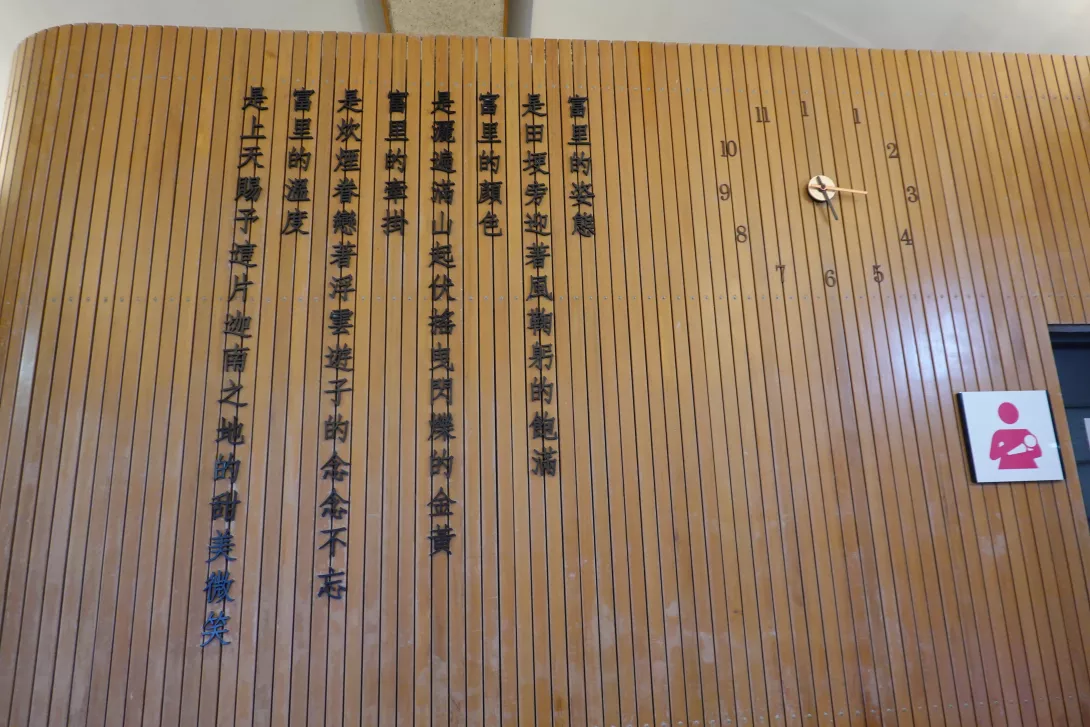 富里的姿態
是田埂旁迎著風鞠躬的飽滿
富里的顏色
是灑遍滿山起伏搖曳閃爍的金黃
富里的牽掛
是炊煙眷戀著浮雲遊子的念念不忘
富里的溫度
是上天賜予這片迦南之地的甜美微笑
11 1 1
10 2
9 3
8 4
7 6 5